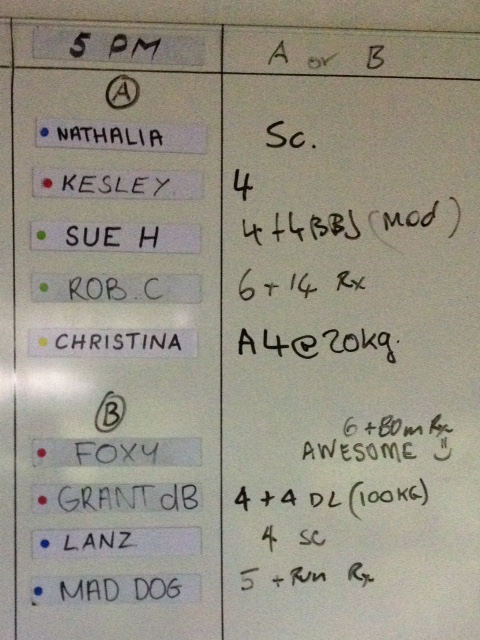 5 PM A or B
A
NATHALIA Sc.
KESLEY 4
SUE H 4+4BBJ (Mod)
ROB.C 6+14 Rx
CHRISTINA A4@20kg.
B
6+80m Rx
FOXY AWESOME
GRANT dB 4+4 DL (100KG)
LANZ 4 SC
MAD DOG 5 +Run Rx